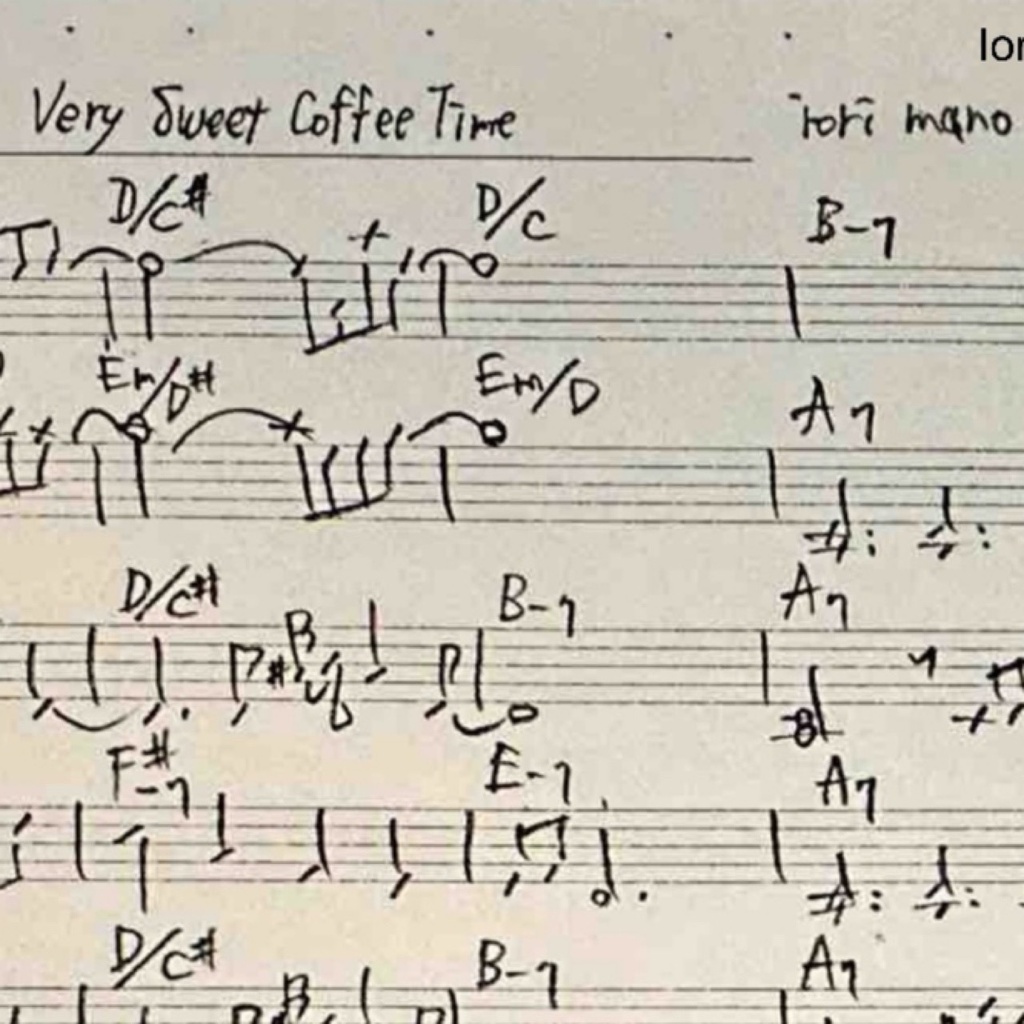 Ior
Very Sweet Coffee Time iori mano
D/C# D/C B-7
Em/D# Em/D A7
D/C# B-7 A7
F#-7 E-7 A7
D/C# B-7 A7